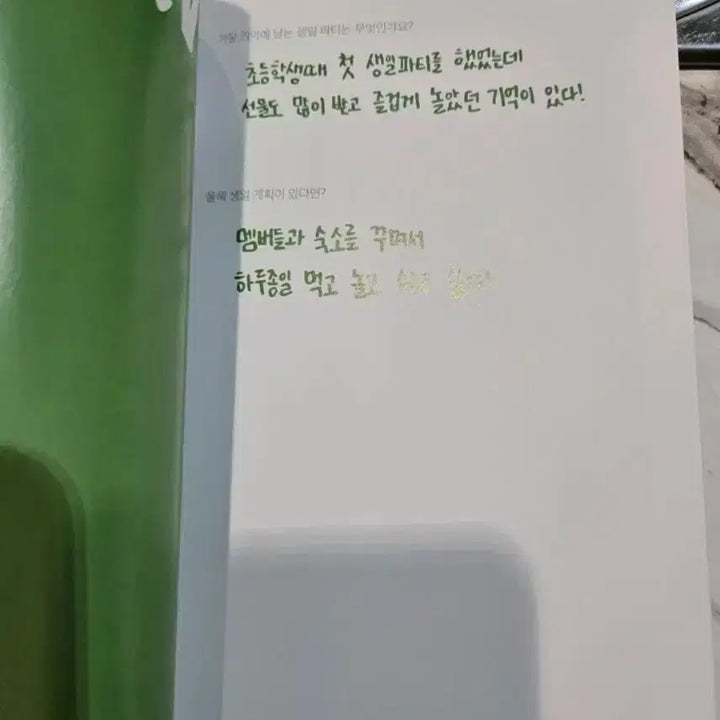 가장 기억에 남는 생일 파티는 무엇인가요?
초등학생때 첫 생일파티를 했었는데
선물도 많이 받고 즐겁게 놀았던 기억이 있다!
올해 생일 계획이 있다면?
멤버들과 숙소를 꾸며서
하루종일 먹고 놀고 싶다